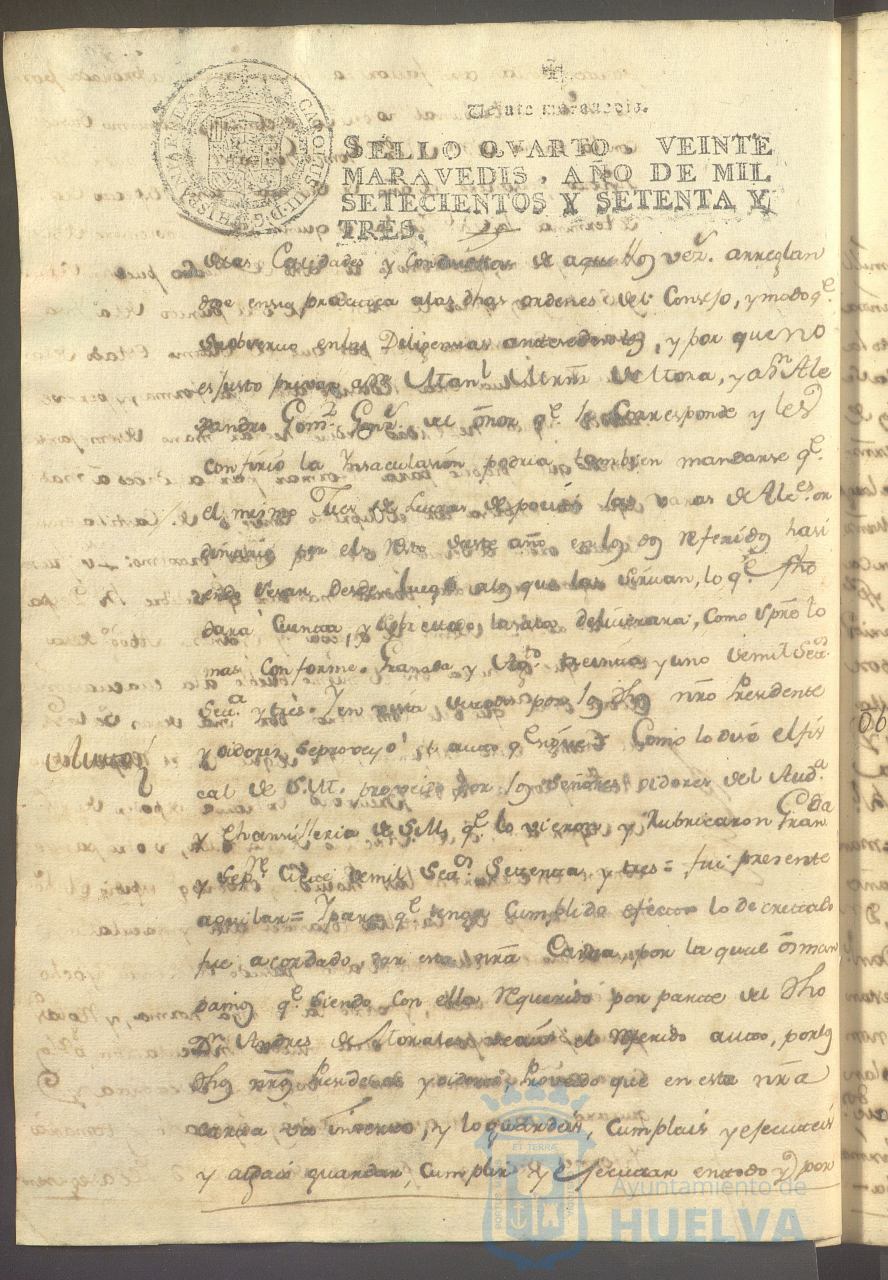 Veinte maravedis.
SELLO QVARTO, VEINTE
MARAVEDIS, AÑO DE MIL
SETECIENTOS Y SETENTA Y
TRES.
CAROLUS III D G HISPANIAR REX
Calidades y Conductas de aquellos vez.s arreglan
dose en su practica a las dhas ordenes del Consejo, y modo q.e
se observó en las Diligencias antesedentes, y por que no
es justo privar a D.n Man.l de Mora, y a D.n Ale
xandro Gom.z Gonz.z del onor q.e les Corresponde y les
confirió la Ynsaculasión podria tambien mandarse q.e
el mismo Jues de Letras deposite las varas de Alc.es or
dinarios por el Resto deste año en los dos Referidos hasi
endo Cesar desde luego a los que las sirvan, lo q.e fho
dará Cuenta, y la Sala deliverará, como Spre lo
mas Conforme. Granada y Ag.to treinta y uno de mil Set.s
Set.a y tres. Y en vista por los dhos nro Presidente
y oidores se proveyó el auto q.e Como lo dise el fis
Auto
cal de S.M. proveido por los Señores oidores del Aud.a
y Chansilleria de S.M. q.e lo vieron y Rubricaron Gran.da
y Sep.re siete de mil Set.s Setenta y tres = fui presente
Aguilar = Y para q.e tenga Cumplido efecto lo decretado
fue acordado, dar esta nra Carta, por la qual os man
damos q.e siendo con ella Requerido por parte del dho
D.n Andres de Morales veais el Referido auto, por los
dhos nros Presidente y oidores Proveido que en esta nra
carta va inserto, y lo guardeis, Cumplais y executeis
y agais guardar, Cumplir y executar en todo y por
Ayuntamiento de
HUELVA